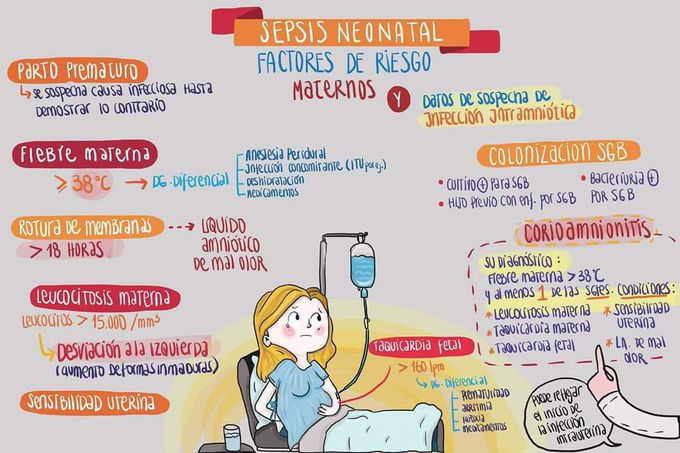 SEPSIS NEONATAL
FACTORES DE RIESGO
MATERNOS Y
DATOS DE SOSPECHA DE
INFECCIÓN INTRAMNIÓTICA
PARTO PREMATURO
SE SOSPECHA CAUSA INFECCIOSA HASTA
DEMOSTRAR LO CONTRARIO
FIEBRE MATERNA
≥ 38°C → DG. DIFERENCIAL
ANESTESIA PERIDURAL
INFECCIÓN CONCOMITANTE (ITU por ej.)
DESHIDRATACIÓN
MEDICAMENTOS
ROTURA DE MEMBRANAS
> 18 HORAS
LÍQUIDO
AMNIÓTICO
DE MAL OLOR
LEUCOCITOSIS MATERNA
LEUCOCITOS > 15.000 /mm³
DESVIACIÓN A LA IZQUIERDA
(AUMENTO DE FORMAS INMADURAS)
SENSIBILIDAD UTERINA
TAQUICARDIA FETAL
> 160 lpm
DG. DIFERENCIAL
PREMATURIDAD
ARRITMIA
HIPOXIA
MEDICAMENTOS
COLONIZACION SGB
• CULTIVO + PARA SGB
• HIJO PREVIO CON ENF. POR SGB
• BACTERIURIA +
POR SGB
CORIOAMNIONITIS
SU DIAGNÓSTICO:
FIEBRE MATERNA > 38°C
y al menos 1 DE LAS SGTES. CONDICIONES:
* LEUCOCITOSIS MATERNA
* TAQUICARDIA MATERNA
* TAQUICARDIA FETAL
* SENSIBILIDAD
UTERINA
* L.A. DE MAL
OLOR
PUEDE REFLEJAR
EL INICIO DE
LA INFECCIÓN
INTRAUTERINA